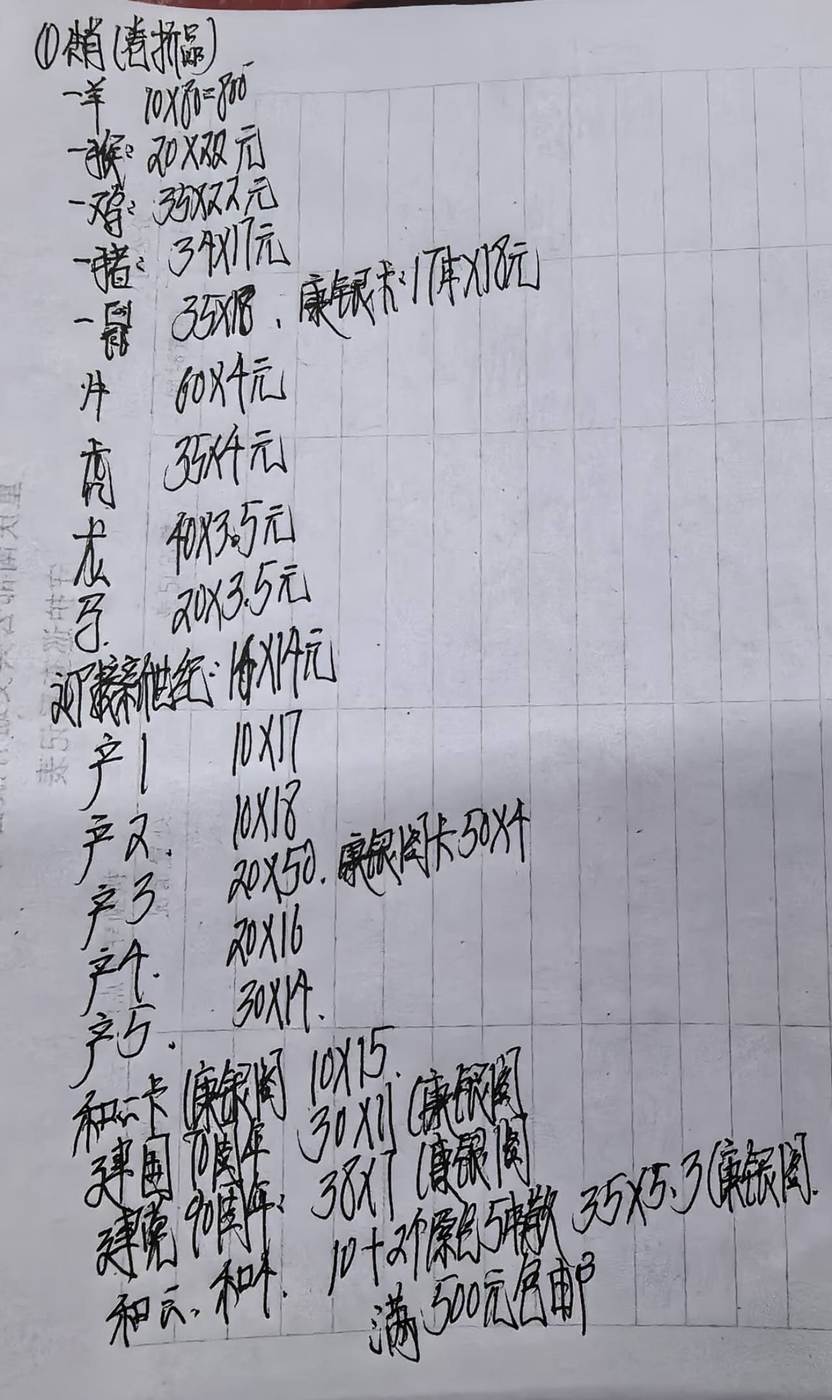 ①销(卷拆品)
一羊 10X80=800
一猴: 20X22元
一鸡: 35X22元
一猪: 34X17元
一鼠 35X18、康银卡:17本X18元
牛 60X4元
虎 35X4元
龙 40X3.5元
马. 20X3.5元
迎接新世纪: 16X14元
产1 10X17
产2. 10X18
产3 20X50. 康银阁卡50X4
产4. 20X16
产5. 30X14.
和二卡(康银阁 10X15.
建国70周年 30X11(康银阁
建党90周年: 38X7(康银阁
和云、和 10+2个原色 散 35X5.3(康银阁.
满500元包邮